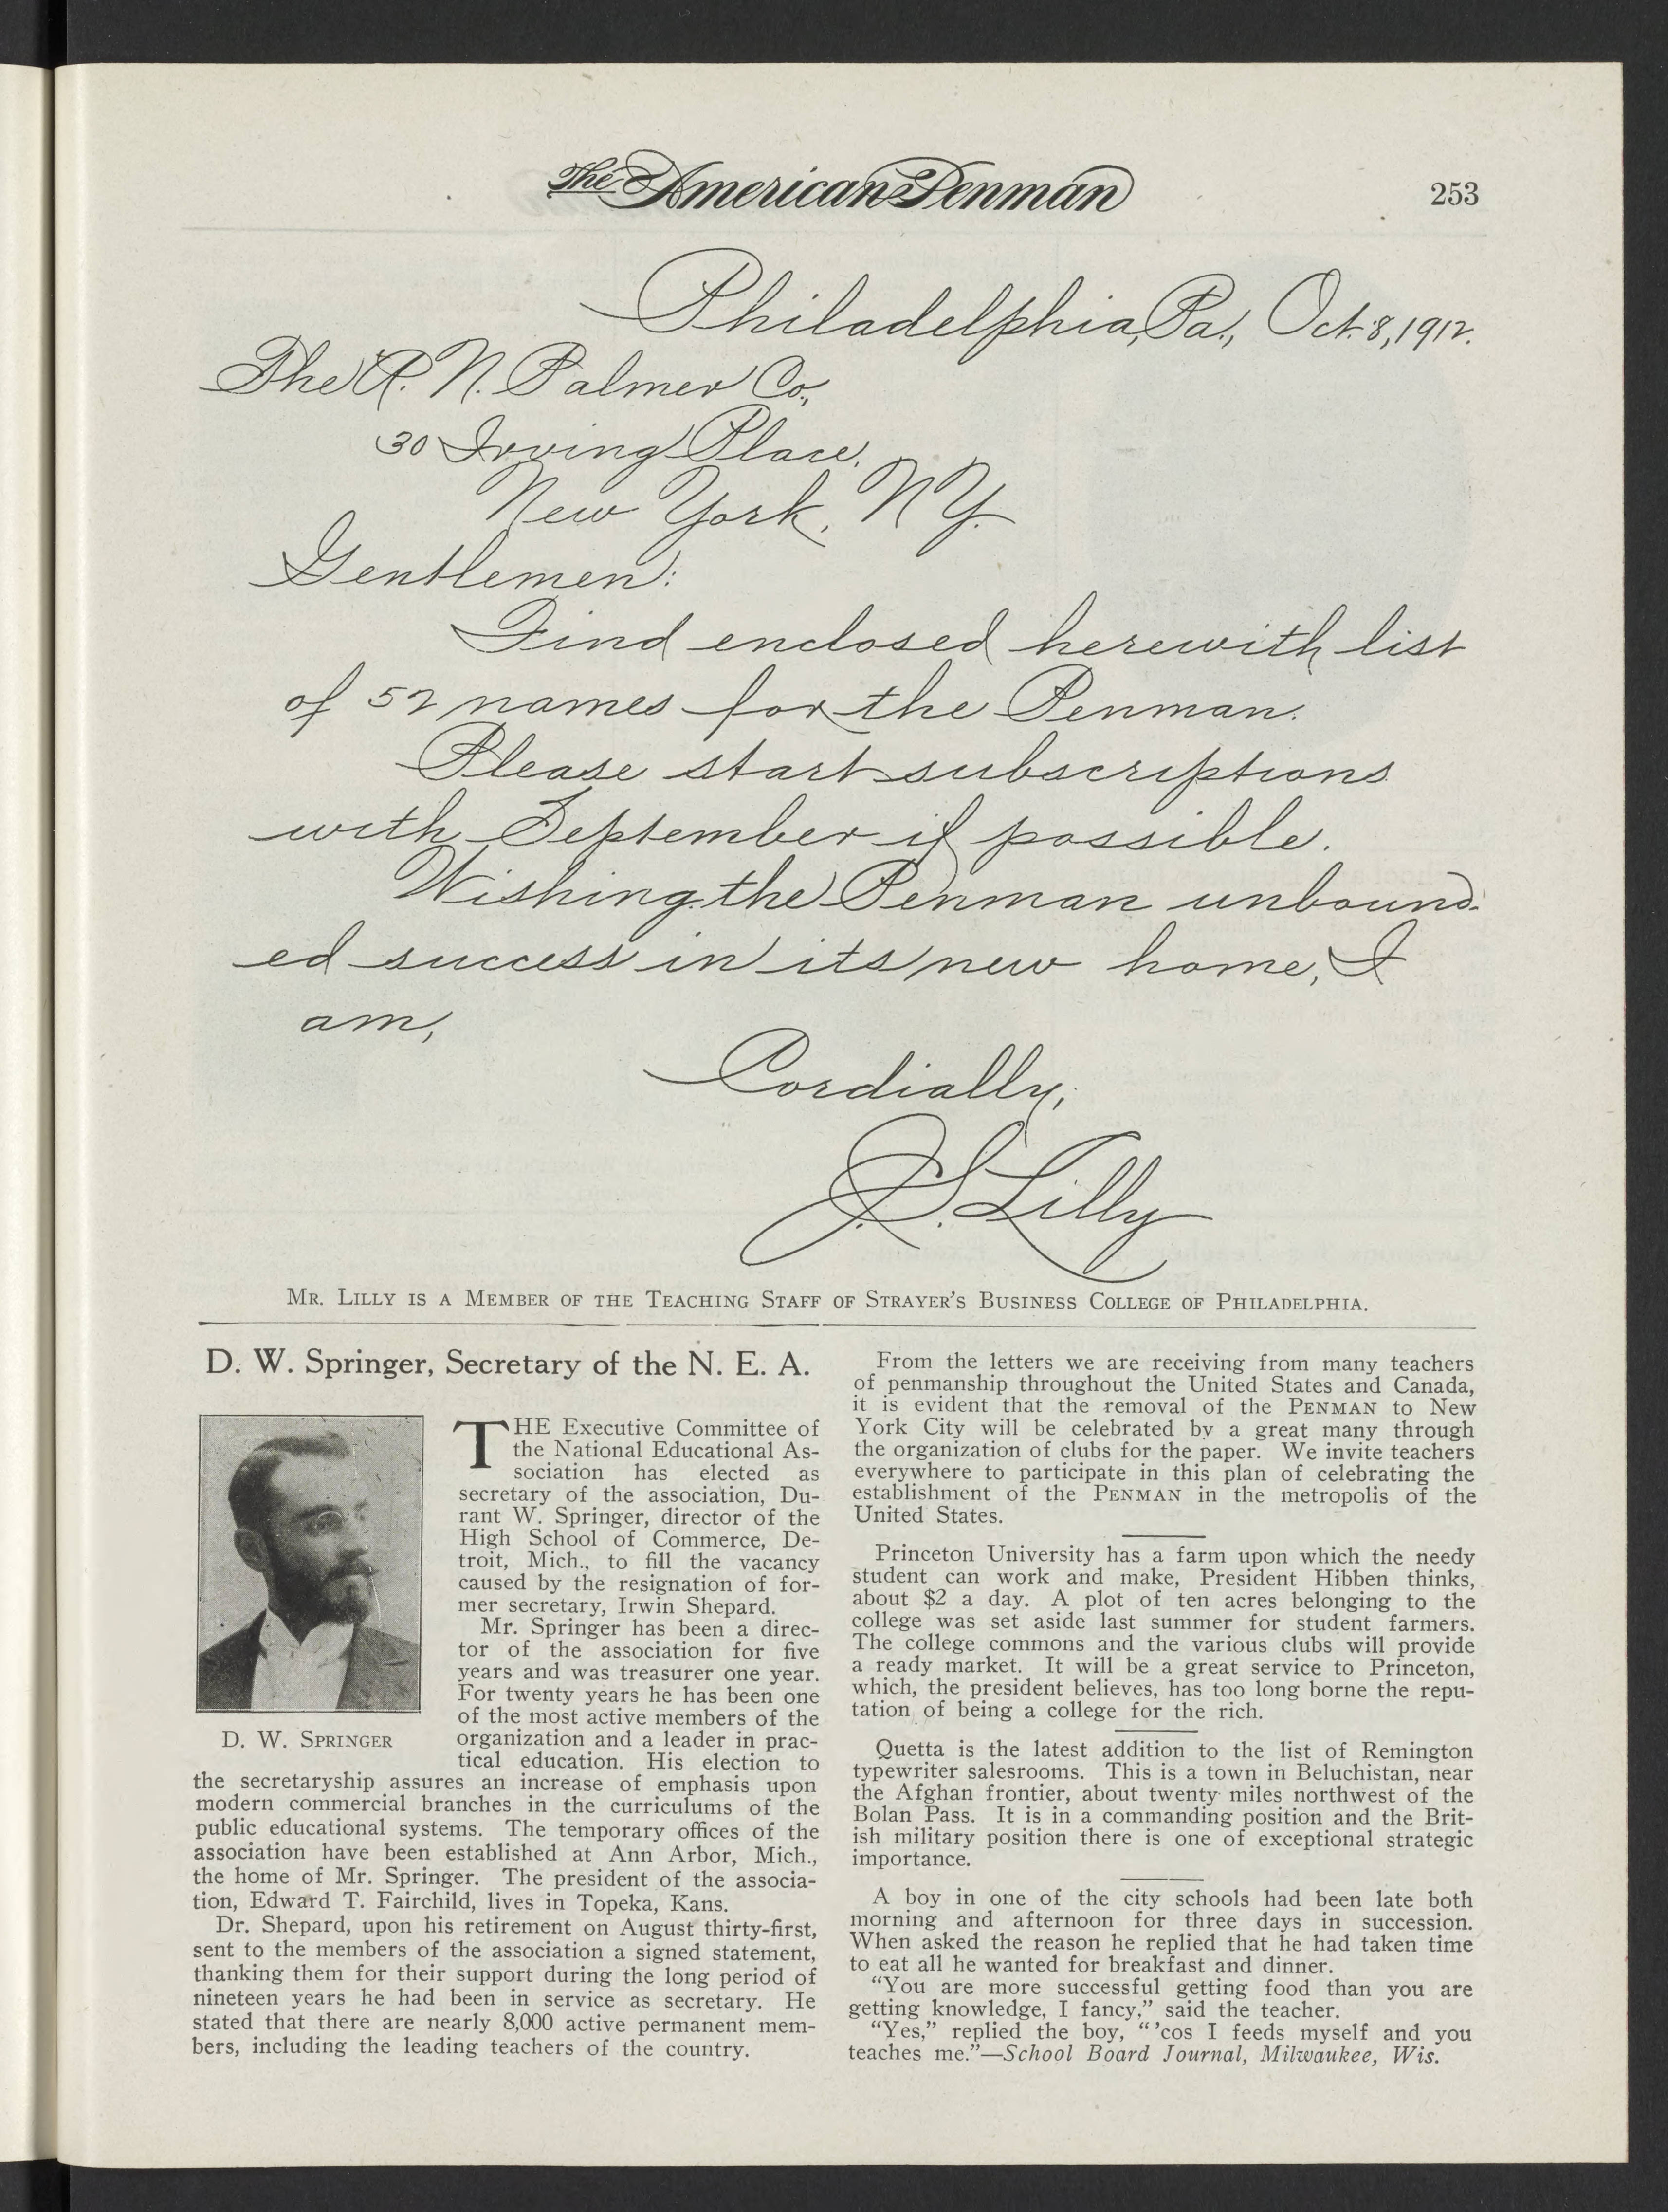 The American Penman
253
Philadelphia, Pa., Oct. 8, 1912.
The A. N. Palmer Co.,
30 Irving Place,
New York, N.Y.
Gentlemen:
Find enclosed herewith list
of 52 names for the Penman.
Please start subscriptions
with September if possible.
Wishing the Penman unbound-
ed success in its new home, I
am,
Cordially,
J. S. Lilly
Mr. Lilly is a Member of the Teaching Staff of Strayer's Business College of Philadelphia.
D. W. Springer, Secretary of the N. E. A.
THE Executive Committee of
the National Educational As-
sociation has elected as
secretary of the association, Du-
rant W. Springer, director of the
High School of Commerce, De-
troit, Mich., to fill the vacancy
caused by the resignation of for-
mer secretary, Irwin Shepard.
Mr. Springer has been a direc-
tor of the association for five
years and was treasurer one year.
For twenty years he has been one
of the most active members of the
organization and a leader in prac-
tical education. His election to
D. W. Springer
the secretaryship assures an increase of emphasis upon
modern commercial branches in the curriculums of the
public educational systems. The temporary offices of the
association have been established at Ann Arbor, Mich.,
the home of Mr. Springer. The president of the associa-
tion, Edward T. Fairchild, lives in Topeka, Kans.
Dr. Shepard, upon his retirement on August thirty-first,
sent to the members of the association a signed statement,
thanking them for their support during the long period of
nineteen years he had been in service as secretary. He
stated that there are nearly 8,000 active permanent mem-
bers, including the leading teachers of the country.
From the letters we are receiving from many teachers
of penmanship throughout the United States and Canada,
it is evident that the removal of the Penman to New
York City will be celebrated by a great many through
the organization of clubs for the paper. We invite teachers
everywhere to participate in this plan of celebrating the
establishment of the Penman in the metropolis of the
United States.
Princeton University has a farm upon which the needy
student can work and make, President Hibben thinks,
about $2 a day. A plot of ten acres belonging to the
college was set aside last summer for student farmers.
The college commons and the various clubs will provide
a ready market. It will be a great service to Princeton,
which, the president believes, has too long borne the repu-
tation of being a college for the rich.
Quetta is the latest addition to the list of Remington
typewriter salesrooms. This is a town in Beluchistan, near
the Afghan frontier, about twenty miles northwest of the
Bolan Pass. It is in a commanding position and the Brit-
ish military position there is one of exceptional strategic
importance.
A boy in one of the city schools had been late both
morning and afternoon for three days in succession.
When asked the reason he replied that he had taken time
to eat all he wanted for breakfast and dinner.
"You are more successful getting food than you are
getting knowledge, I fancy," said the teacher.
"Yes," replied the boy, "'cos I feeds myself and you
teaches me."—School Board Journal, Milwaukee, Wis.